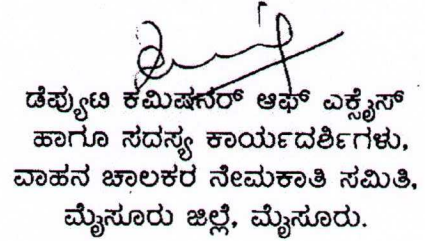 ಡೆಪ್ಯುಟಿ ಕಮಿಷನರ್ ಆಫ್ ಎಕ್ಸೈಸ್
ಹಾಗೂ ಸದಸ್ಯ ಕಾರ್ಯದರ್ಶಿಗಳು,
ವಾಹನ ಚಾಲಕರ ನೇಮಕಾತಿ ಸಮಿತಿ,
ಮೈಸೂರು ಜಿಲ್ಲೆ, ಮೈಸೂರು.